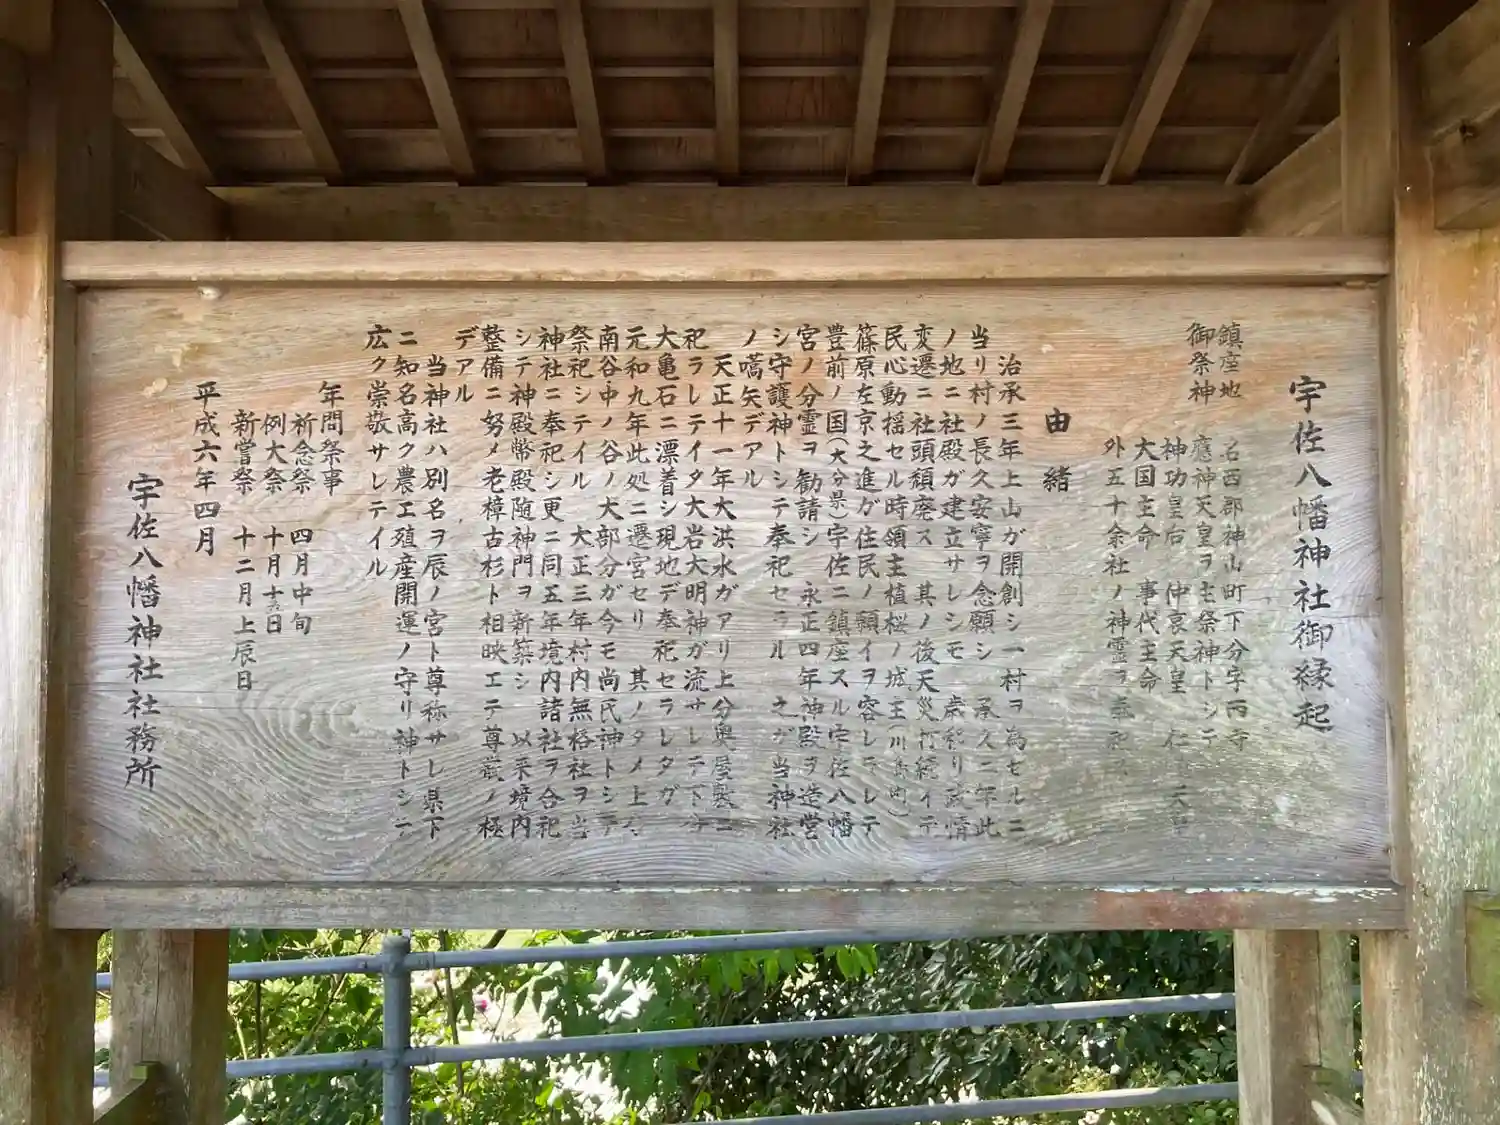 宇佐八幡神社御縁起
鎮座地 名西郡神山町下分字西寺
御祭神 應神天皇ヲ主祭神トシテ
神功皇后 仲哀天皇 仁 天皇
大国主命 事代主命
外五十余社ノ神霊ヲ奉祀
由緒
治承三年上山ガ開創シ一村ヲ為セルニ
当リ村ノ長久安寧ヲ念願シ 承久二年此
ノ地ニ社殿ガ建立サレシモ 歳移リ政情
変遷ニ社頭頽廃ス 其ノ後天災打続イテ
民心動揺セル時領主植桜ノ城主(川 内)
篠原左京之進ガ住民ノ願イヲ容レラレテ
豊前ノ国(大分県)宇佐ニ鎮座スル宇佐八幡
宮ノ分霊ヲ勧請シ 永正四年神殿ヲ造営
シ守護神トシテ奉祀セラル 之ガ当神社
ノ嚆矢デアル
天正十一年大洪水ガアリ上分奥屋敷ニ
祀ラレテイタ大岩大明神ガ流サレテ下分
大亀石ニ漂着シ現地デ奉祀セラレタガ
元和九年此処ニ遷宮セリ 其ノタメ上分
南谷中ノ谷ノ大部分ガ今モ尚氏神トシテ
祭祀シテイル 大正三年村内無格社ヲ当
神社ニ奉祀シ更ニ同五年境内諸社ヲ合祀
シテ神殿幣殿随神門ヲ新築シ 以来境内
整備ニ努メ老樟古杉ト相映エテ尊厳ノ極
デアル
当神社ハ別名ヲ辰ノ宮ト尊称サレ県下
ニ知名高ク農工殖産開運ノ守リ神トシテ
広ク崇敬サレテイル
年間祭事
祈念祭 四月中旬
例大祭 十月十五日
新嘗祭 十二月上辰日
平成六年四月
宇佐八幡神社社務所